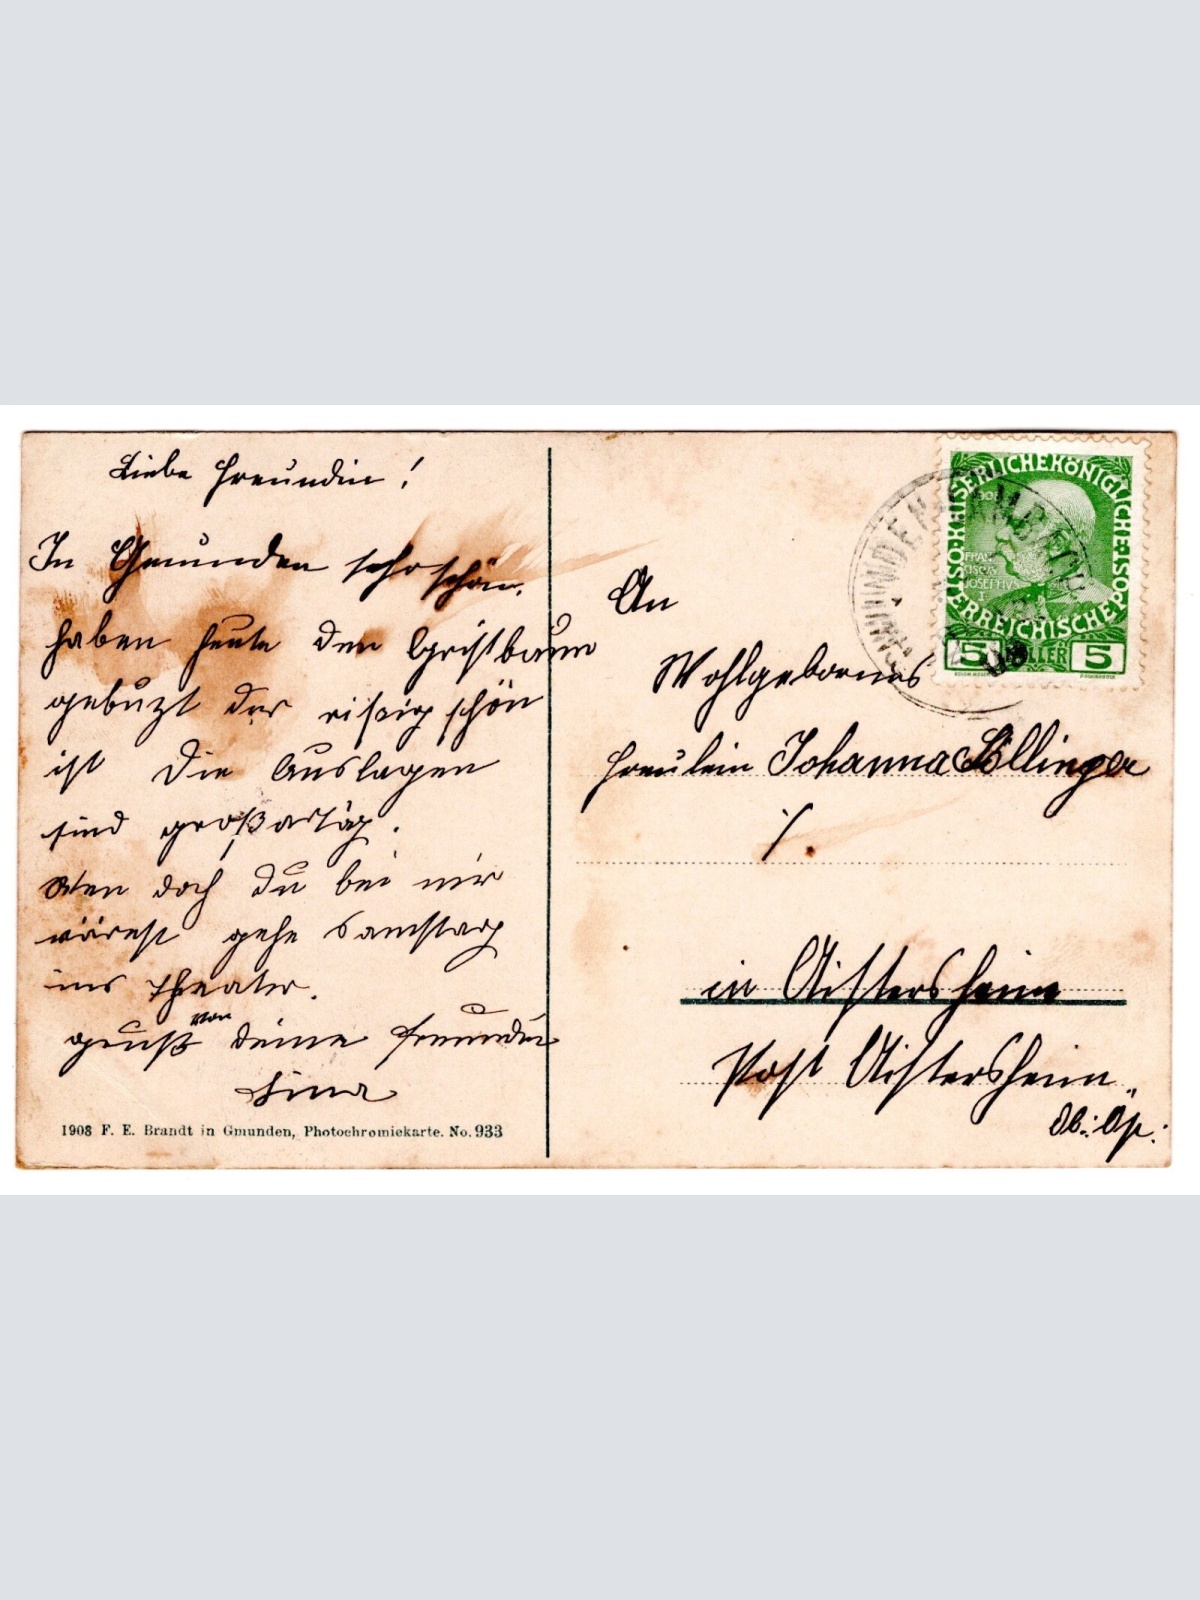 Liebe Freundin!
In Gmunden sehr schön.
haben heute den Cristbaum
gebuzt der risig schön
ist die Auslagen
sind großartig.
Wen doch du bei mir
wärest gehe Samstag
ins Theater.
gruß von deine Freundin
Lina
1908 F. E. Brandt in Gmunden, Photochromiekarte. No. 933
KAISERLICHE KÖNIGLICHE
ÖSTERREICHISCHE POST
1908
FRAN
CISCVS
JOSEPHVS
I.
5 HELLER 5
GMUNDEN-LAMBACH
An
Wohlgebornes
Freulein Johanna
in Aistersheim
Post Aistersheim
Ob: Öst: